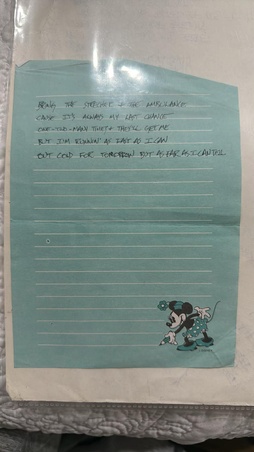 BRING THE STRETCHER & THE AMBULANCE
CAUSE IT'S ALWAYS MY LAST CHANCE
ONE-TOO-MANY THEFTS THEY'LL GET ME
BUT I'M RUNNIN' AS FAST AS I CAN
BUT GOOD FOR TOMORROW BUT AS FAR AS I CAN TELL